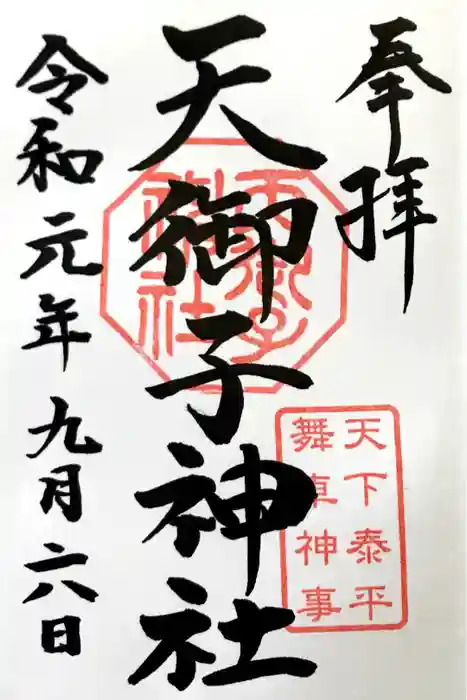 奉拝
天御子神社
天御子神社
天下泰平
舞車神事
令和元年九月六日